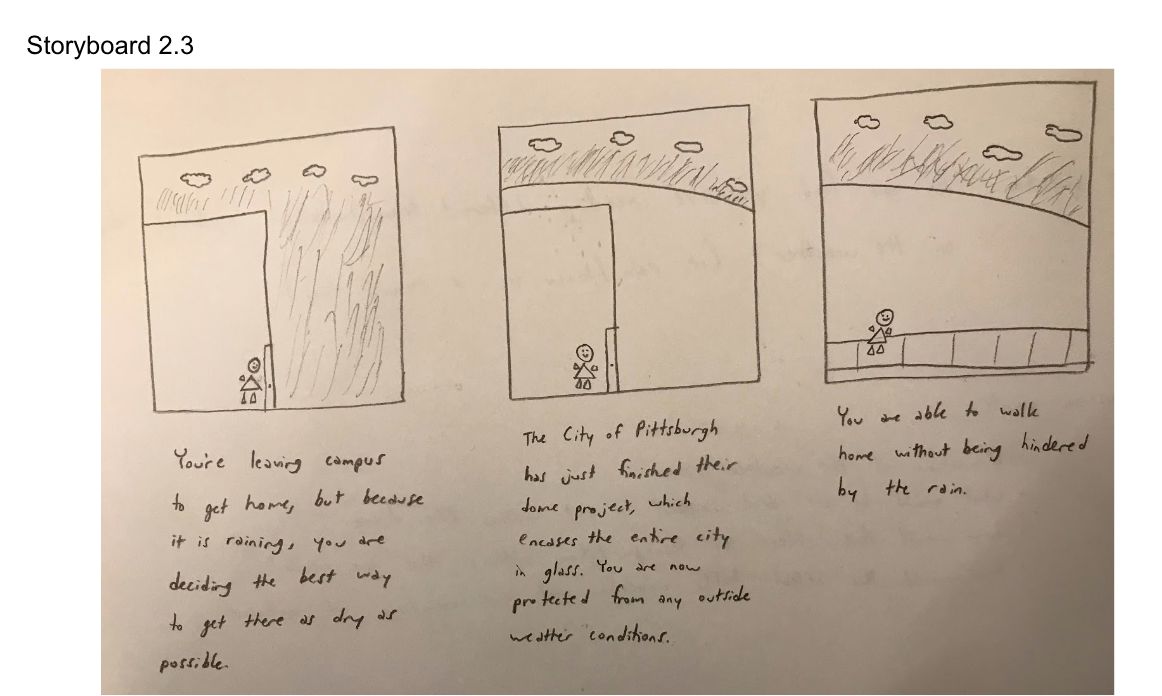 Storyboard 2.3
You're leaving campus
to get home, but because
it is raining, you are
deciding the best way
to get there as dry as
possible.
The City of Pittsburgh
has just finished their
dome project, which
encases the entire city
in glass. You are now
protected from any outside
weather conditions.
You are able to walk
home without being hindered
by the rain.